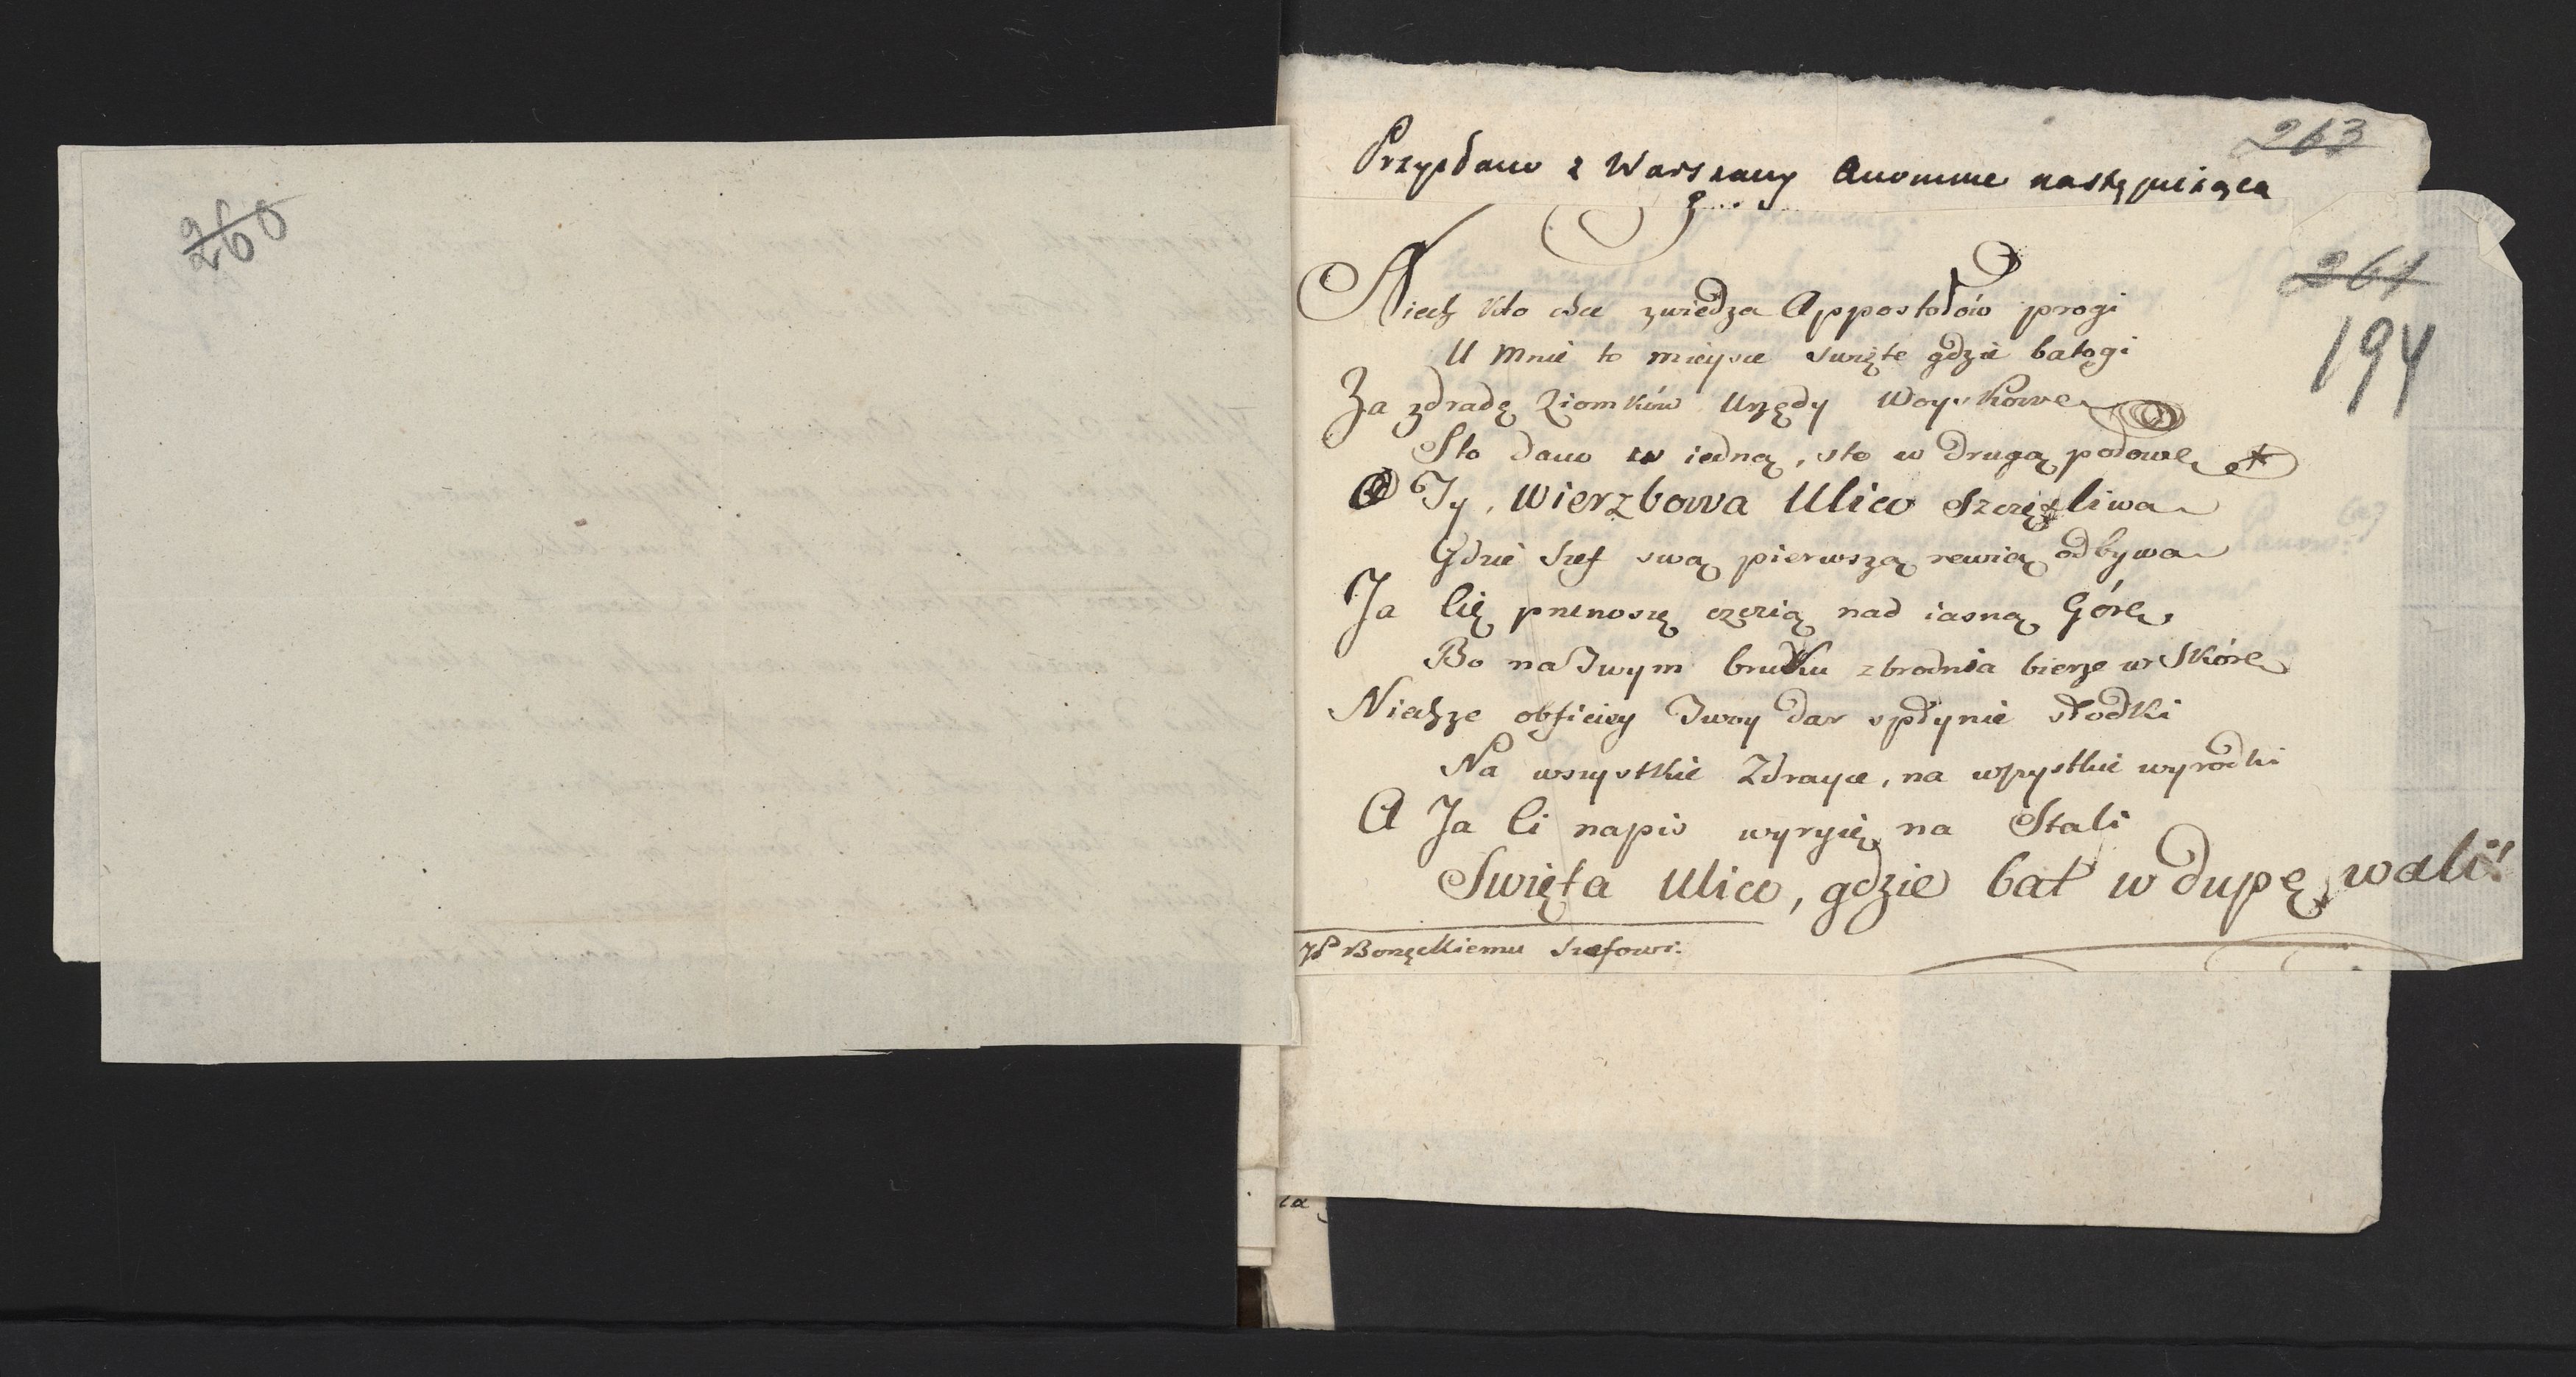 260
263
Przysłano z Warszawy Anonime następuiąca
261
194
Niech kto chce zwiedza Appostołów progi
U mnie to mieysce święte gdzie batogi
Za zdradę Ziomków Urzędy Woyskowe
Sto dano w iedną, sto w drugą połowę *
O Ty, Wierzbowa Ulico szczęśliwa
Gdzie Szef swą pierwszą rewią odbywa
Ja Cię przenoszę czcią nad iasną Górę,
Bo na Twym bruku zbrodnia bierze w Skórę
Niechze obficiey Twoy dar spłynie słodki
Na wszystkie Zdrayce, na wszystkie wyrodki
A Ja Ci napis wyryię na Stali
Swięta Ulico, gdzie bat w dupę wali!
* Boręckiemu Szefowi.